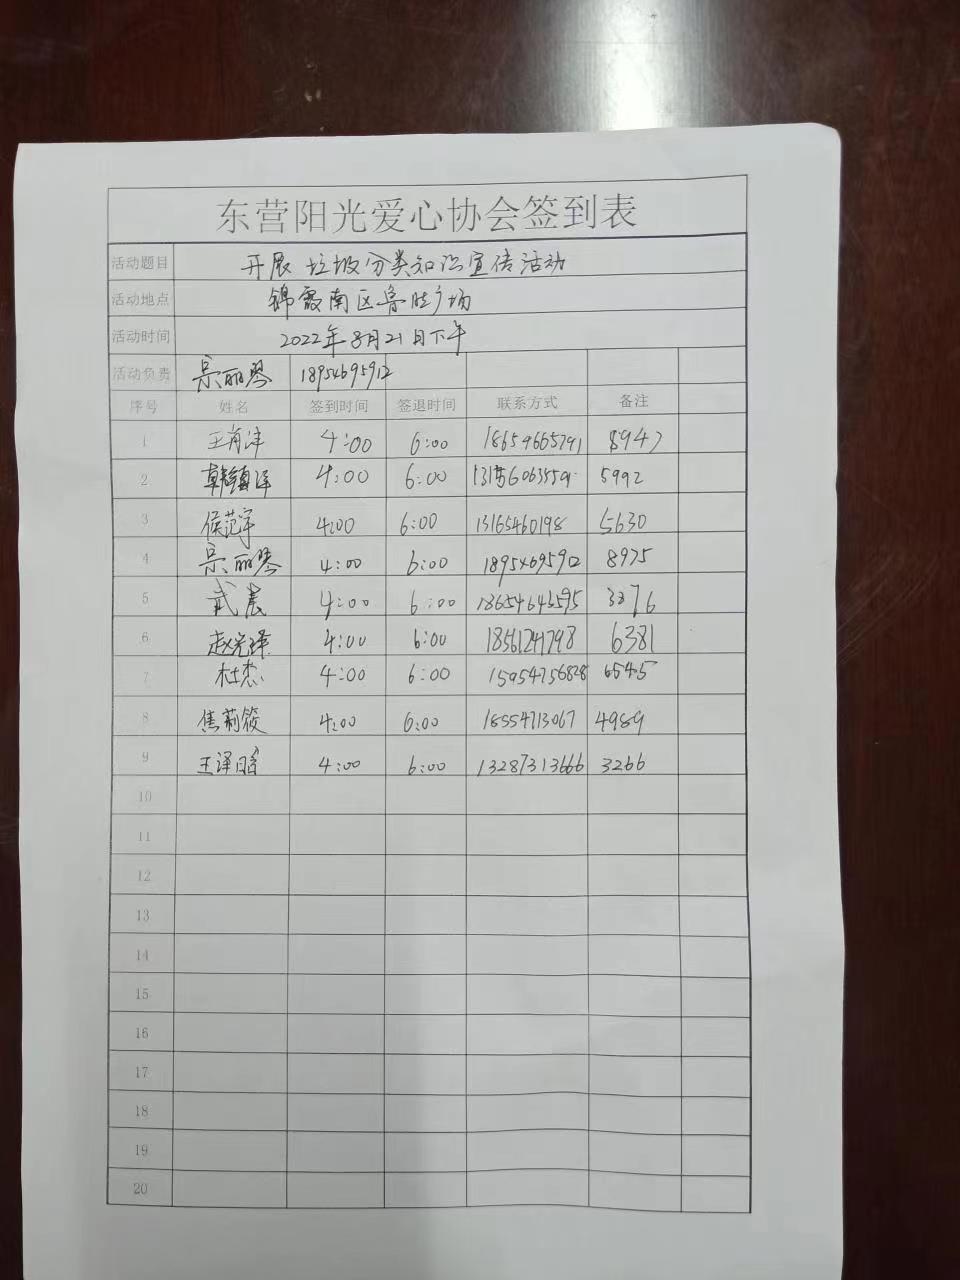 东营阳光爱心协会签到表
活动题目 开展垃圾分类知识宣传活动
活动地点 锦霞南区鲁胜广场
活动时间 2022年8月21日下午
活动负责 吴丽琴 18954695912
序号 姓名 签到时间 签退时间 联系方式 备注
1 王肖洋 4:00 6:00 18659665791 8947
2 韩镇洋 4:00 6:00 5992
3 侯范宇 4:00 6:00 13165460198 5630
4 吴丽琴 4:00 6:00 18954695912 8975
5 武晨 4:00 6:00 18654643595 3376
6 赵光泽 4:00 6:00 18561241798 6381
7 杜杰 4:00 6:00 15954756828 6545
8 焦莉筱 4:00 6:00 18554713067 4989
9 王译 4:00 6:00 13287313666 3266
10
11
12
13
14
15
16
17
18
19
20